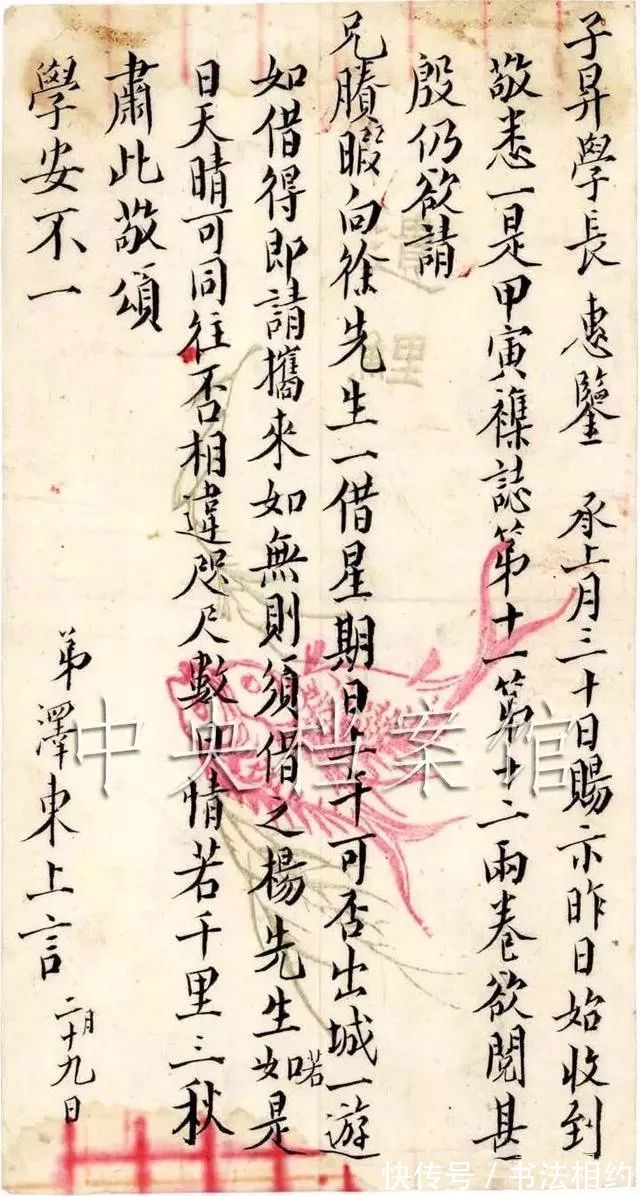 子昇學長 惠鑒 承上月三十日賜示昨日始收到
敬悉一是甲寅襍誌第十一第十二兩卷欲閱甚
殷仍欲請
兄賸暇向徐先生一借星期日上午可否出城一遊
如借得即請攜來如無則須借之楊先生喏如是
日天晴可同往否相違咫尺數日情若千里三秋
肅此敬頌
學安不一
弟澤東上言 二月十九日
中央档案馆
快传号／书法相约